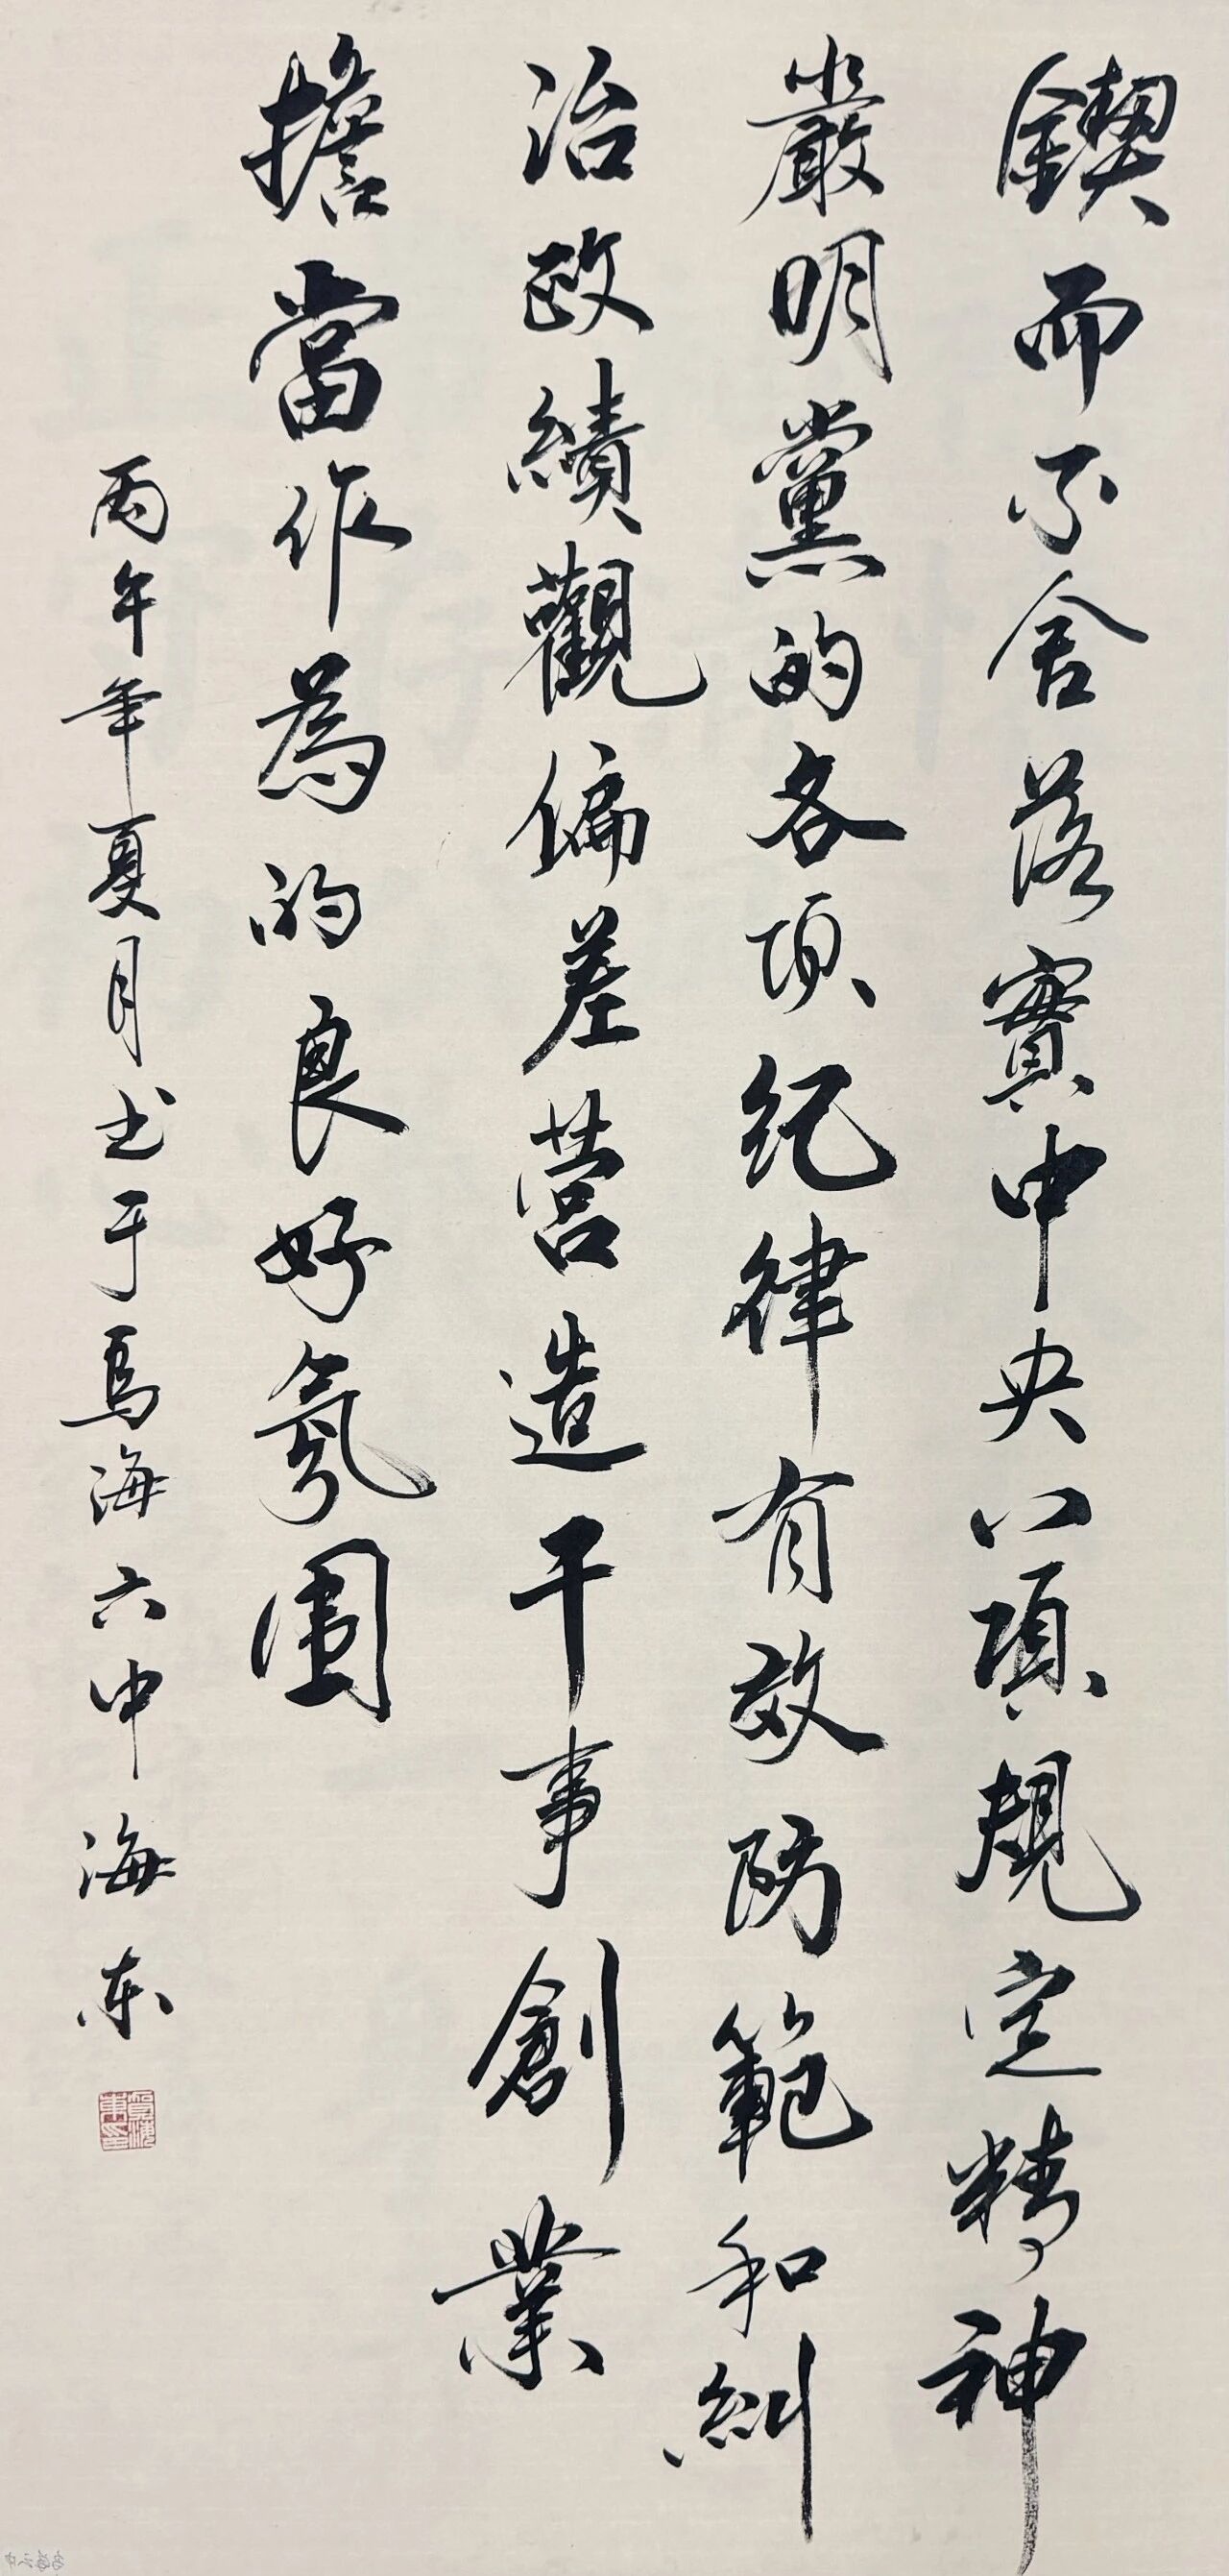 鍥而不舍落實中央八項規定精神
嚴明黨的各項纪律有效防範和糾
治政績觀偏差营造干事創業
擔當作為的良好氛围
丙午年夏月书于烏海六中海东